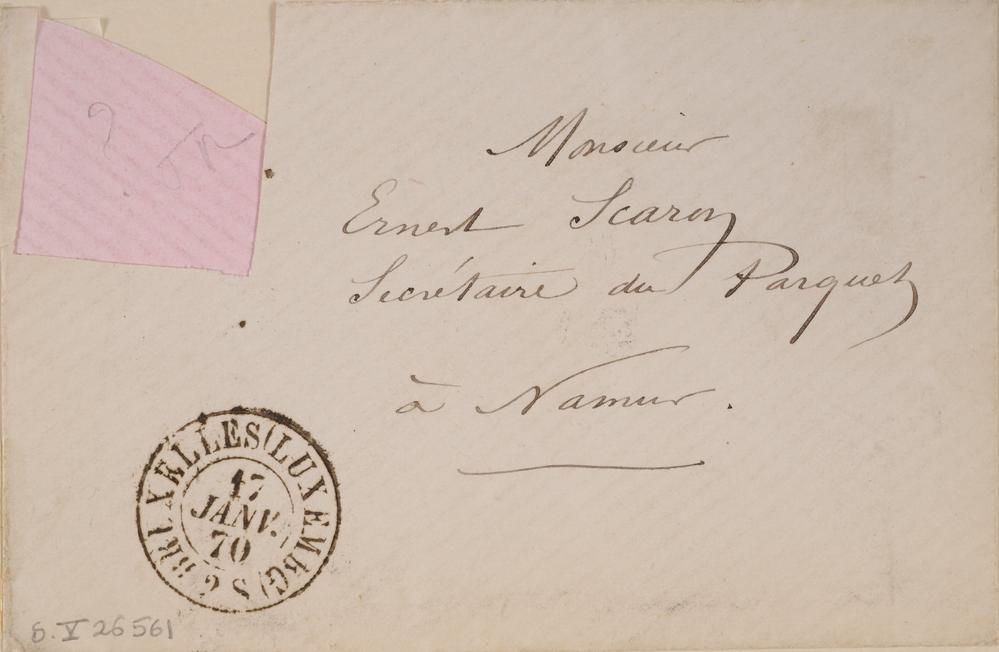 Monsieur
Ernest Scaron
Secrétaire du Parquet
à Namur.
BRUXELLES (LUXEMBG) S 6
17
JANV.
70
S.V 26561